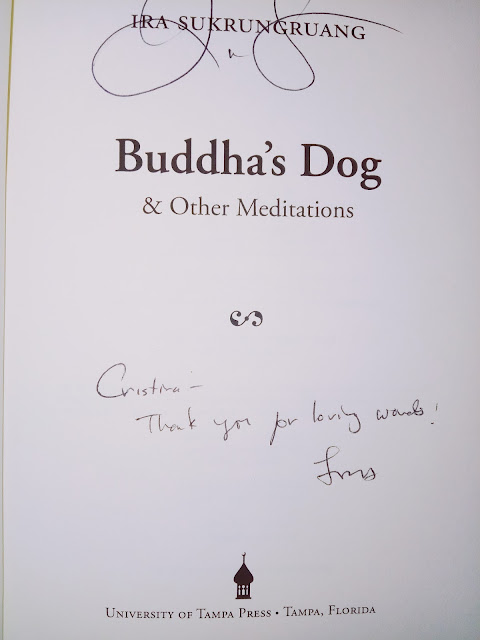 IRA SUKRUNGRUANG
Buddha's Dog
& Other Meditations
Cristina –
Thank you for loving words!
UNIVERSITY OF TAMPA PRESS • TAMPA, FLORIDA